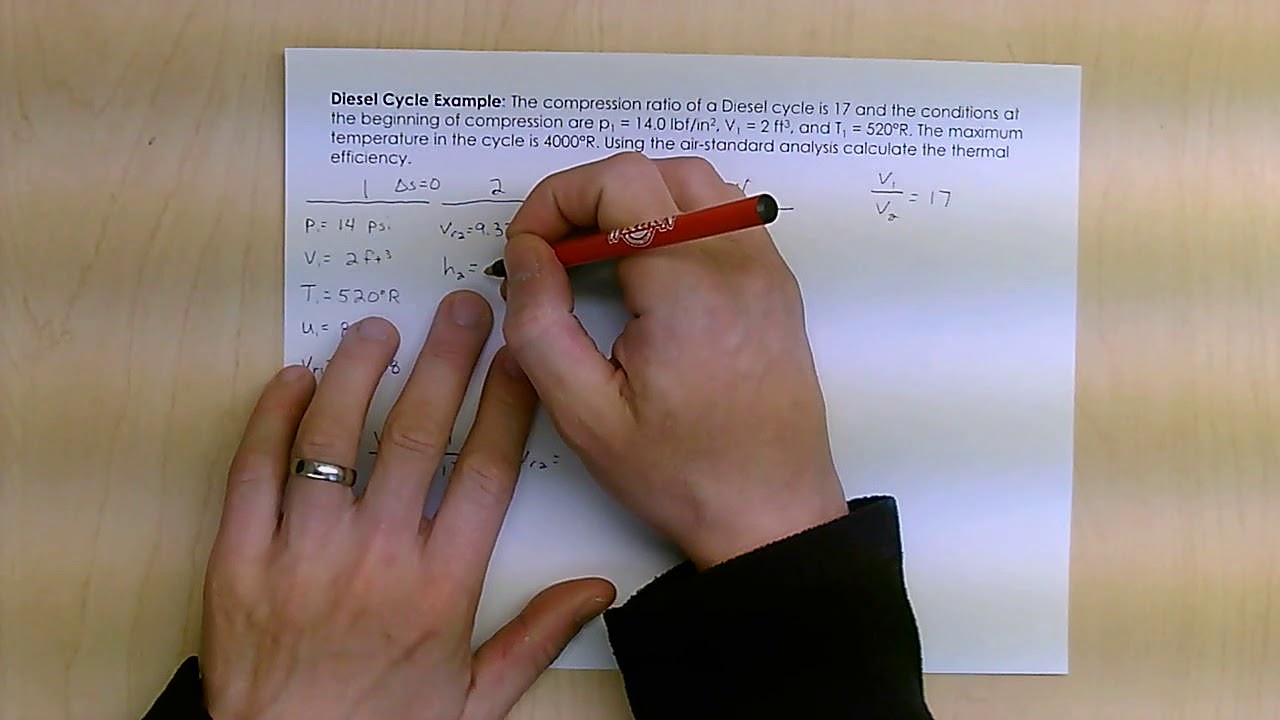 Diesel Cycle Example: The compression ratio of a Diesel cycle is 17 and the conditions at
the beginning of compression are p₁ = 14.0 lbf/in², V₁ = 2 ft³, and T₁ = 520°R. The maximum
temperature in the cycle is 4000°R. Using the air-standard analysis calculate the thermal
efficiency.
1 Δs=0 2
V₁/V₂ = 17
P₁= 14 psi
V₁= 2 ft³
T₁= 520°R
u₁=
Vr₂=9.3
h₂=